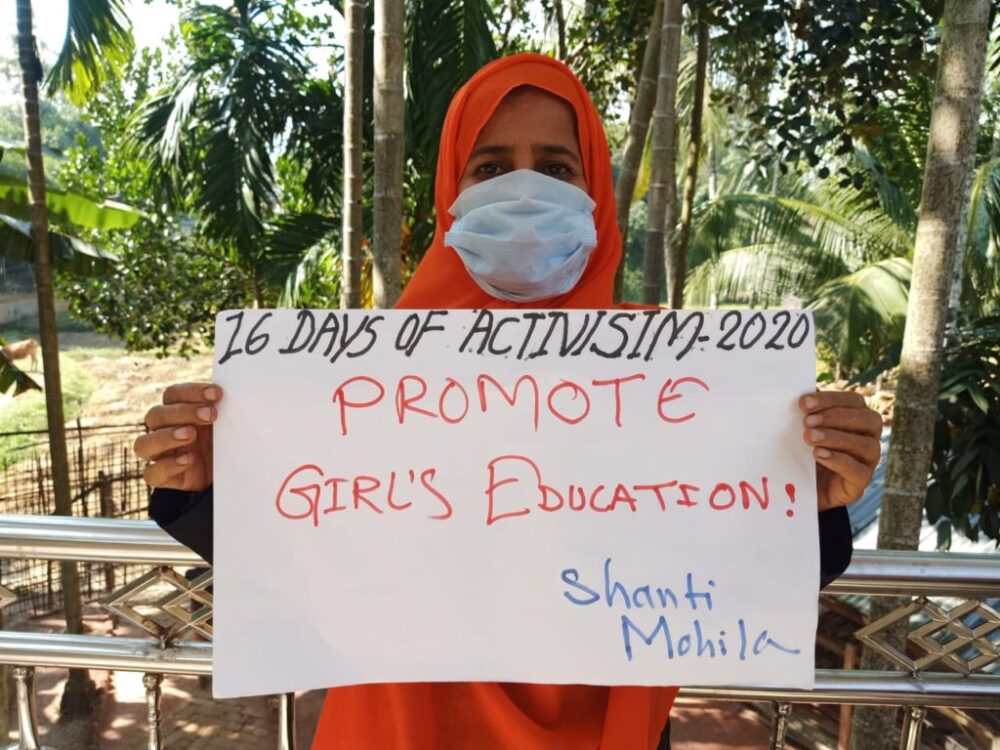 16 DAYS OF ACTIVISIM-2020
PROMOTE
GIRL'S EDUCATION!
Shanti
Mohila